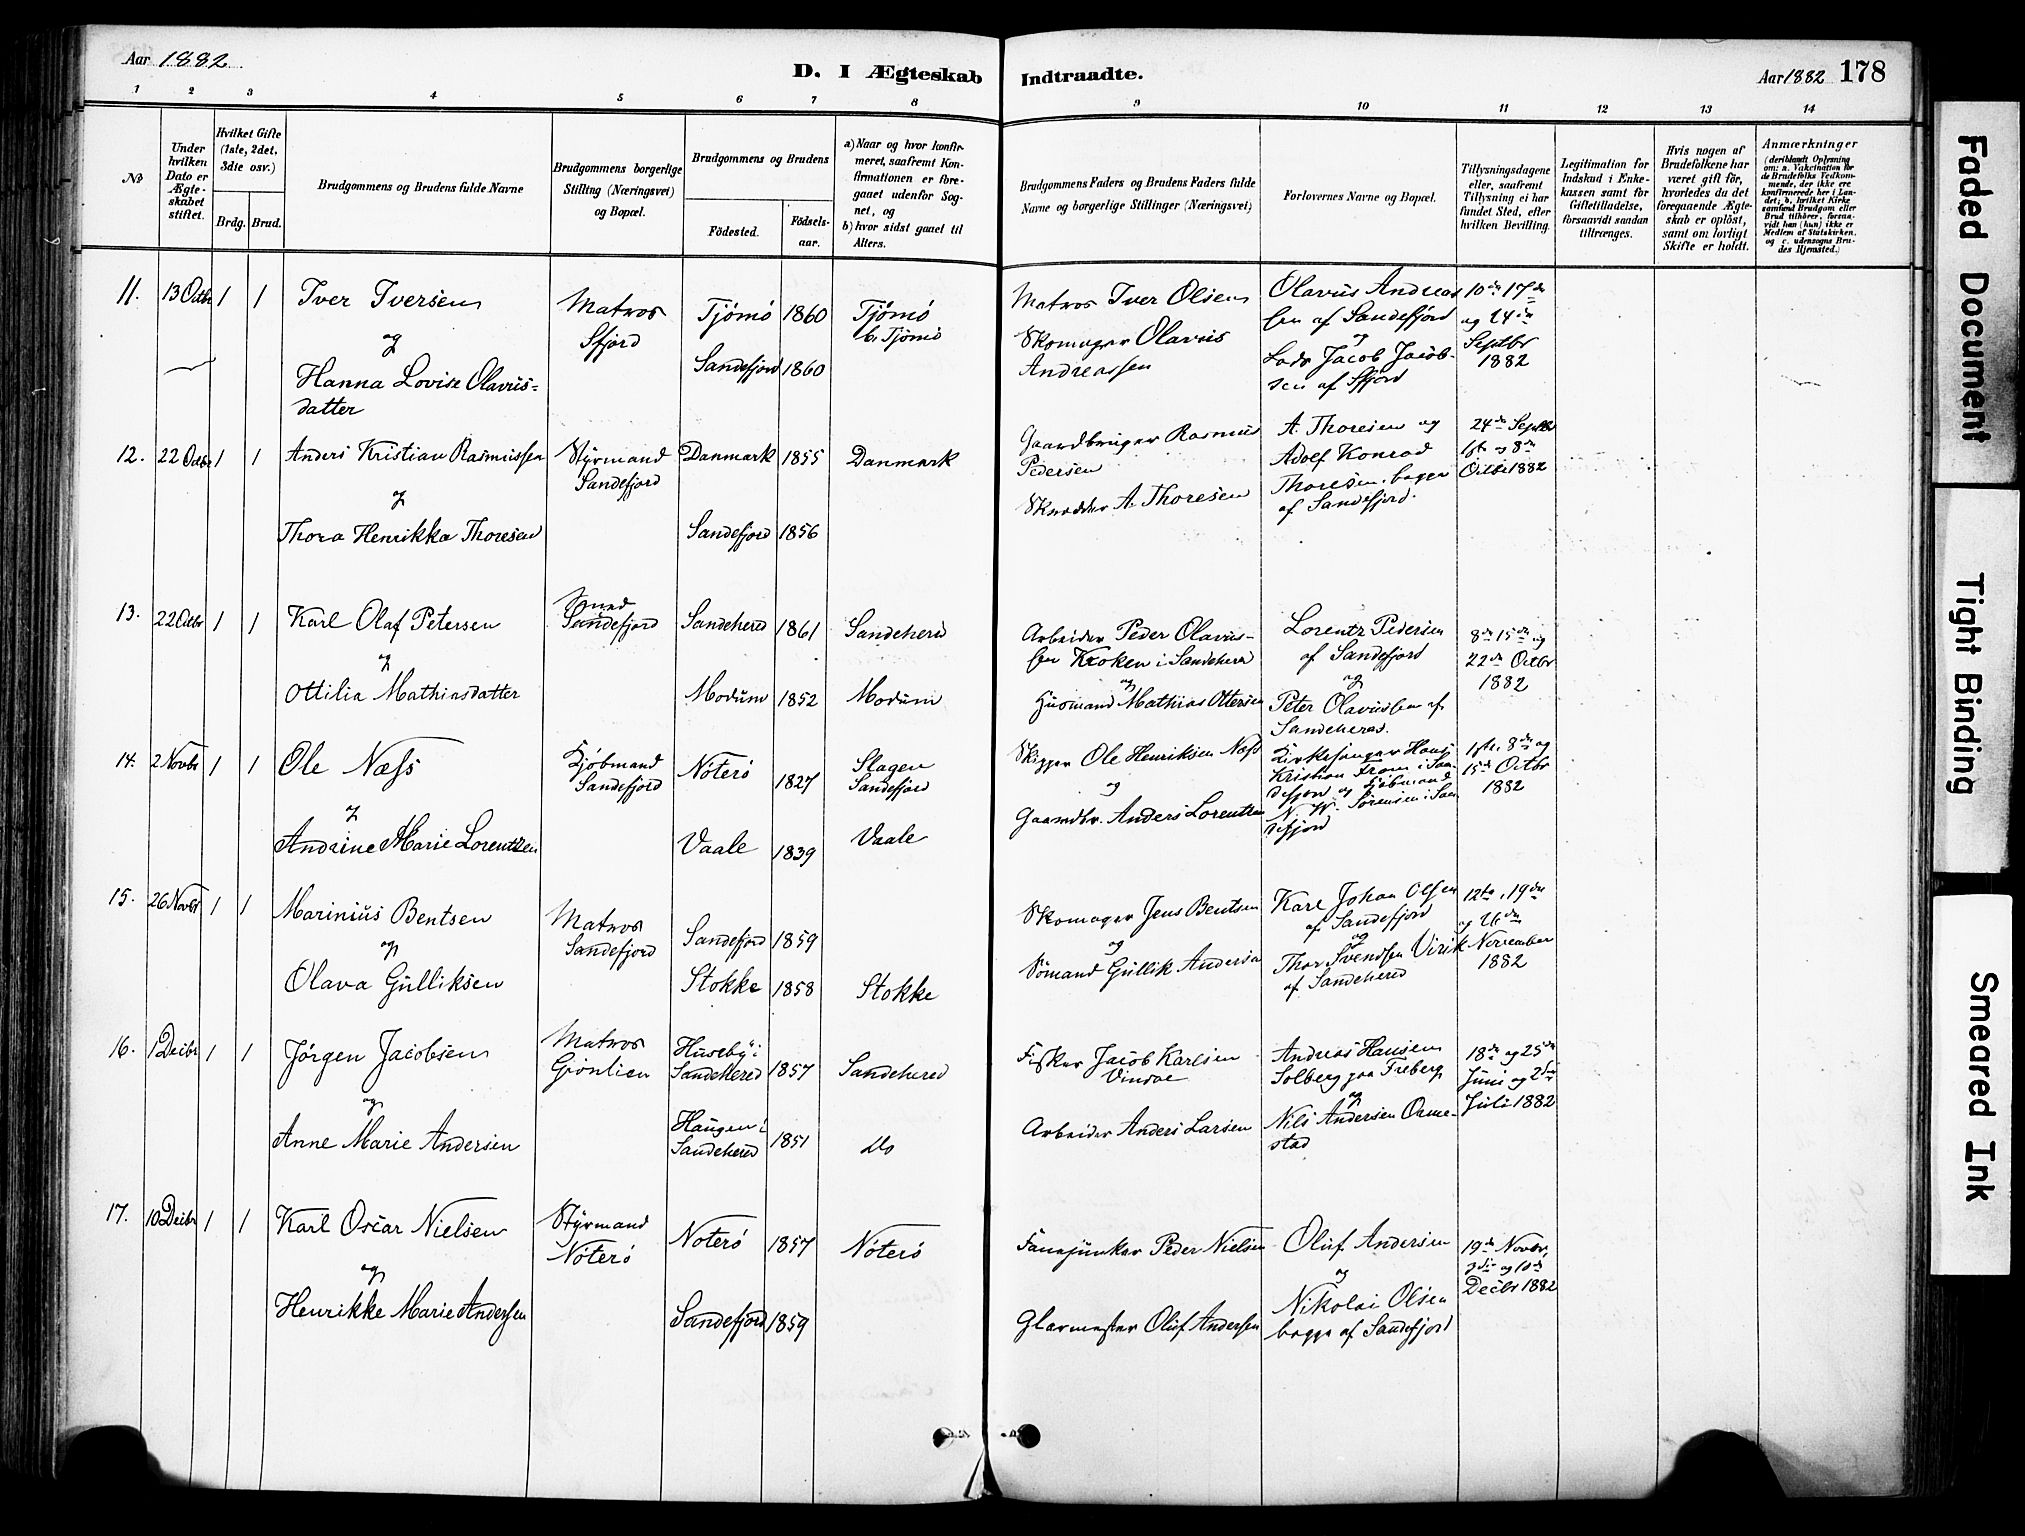 Aar 1882
D. I Ægteskab
Indtraadte.
Aar 1882
178
1 2 3 4 5 6 7 8 9 10 11 12 13 14
No
Under
hvilken
Dato er
Ægte-
skabet
stiftet.
Hvilket Gifte
(1ste, 2det,
3die osv.)
Brdg. Brud.
Brudgommens og Brudens fulde Navne
Brudgommens borgerlige
Stilling (Næringsvei)
og Bopæl.
Brudgommens og Brudens
Fødested.
Fødsels-
aar.
a) Naar og hvor konfir-
meret, saafremt Kon-
firmationen er fore-
gaaet udenfor Sog-
net, og
b) hvor sidst gaaet til
Alters.
Brudgommens Faders og Brudens Faders fulde
Navne og borgerlige Stillinger (Næringsvei)
Forlovernes Navne og Bopæl.
Tillysningsdagene
eller, saafremt
Tillysning ei har
fundet Sted, efter
hvilken Bevilling.
Legitimation for
Indskud i Enke-
kassen samt for
Giftetilladelse,
forsaavidt saadan
tiltrænges.
Hvis nogen af
Brudefolkene har
været gift før,
hvorledes du det
foregaaende Ægte-
skab er opløst,
samt om lovligt
Skifte er holdt.
Anmærkninger
(deriblandt Oplysning
om: a. Vakcination for
de Brudefolks Vedkom-
mende, der ikke ere
konfirmerede her i Lan-
det; b. hvilket Kirke
samfund Brudgom eller
Brud tilhører, forsaa-
vidt han (hun) ikke er
Medlem af Statskirken.
og c. udensogns Bru-
des Hjemsted.)
11. 13 Octbr 1 1 Iver Iversen
og
Hanna Lovise Olavus-
datter
Matros
Sfjord
Tjømø 1860
Sandefjord 1860
Tjømø
b. Tjømø
Matros Iver Olsen
Skomager Olavus
Andreassen
Olavus Andreas
sen af Sandefjord
og
Lods Jacob Jacob-
sen af Sfjord
10de 17de
og 24de
Septbr
1882
12. 22 Octbr 1 1 Anders Kristian Rasmussen
og
Thora Henrikka Thoresen
Styrmand
Sandefjord
Danmark 1855
Sandefjord 1856
Danmark
Gaardbruger Rasmus
Pedersen
Skrædder A. Thoresen
A. Thoresen og
Adolf Konrad
Thoresen. begge
af Sandefjord.
24de Septbr
1ste og 8de
Octbr 1882
13. 22 Octbr 1 1 Karl Olaf Petersen
og
Ottilia Mathiasdatter
Smed
Sandefjord
Sandeherred 1861
Modum 1852
Sandeherred
Modum
Arbeider Peder Olavus-
sen Kroken i Sandeherred
og
Husmand Mathias Ottersen
Lorentz Pedersen
af Sandefjord
og
Peter Olavussen af
Sandeherred.
8de 15de og
22de Octbr
1882
14. 2 Novbr 1 1 Ole Næss
og
Andrine Marie Lorentzen
Kjøbmand
Sandefjord
Nøterø 1827
Vaale 1839
Slagen
Sandefjord
Vaale
Skipper Ole Henriksen Næss
og
Gaardbr. Anders Lorentzen
Kirkesanger Hans
Kristian From i San-
defjord og Kjøbmand
Sørensen i San-
defjord
1ste, 8de og
15de Octbr
1882
15. 26 Novbr 1 1 Marinius Bentsen
og
Olava Gulliksen
Matros
Sandefjord
Sandefjord 1859
Stokke 1858
Stokke
Skomager Jens Bentsen
og
Sømand Gullik Anderse
Karl Johan Olsen
af Sandefjord
og
Thor Svendsen Virik
af Sandeherred
12te, 19de
og 26de
November
1882
16. 1 Decbr 1 1 Jørgen Jacobsen
og
Anne Marie Andersen
Matros
Grønlien
Huseby i
Sandeherred 1857
Haugen i
Sandeherred 1851
Sandeherred
Do
Fisker Jacob Karlsen
Vindae
Arbeider Anders Larsen
Andreas Hansen
Solberg paa Freberg
og
Nils Andersen Orme-
stad
18de og 25de
Juni og 2den
Juli 1882
17. 10 Decbr 1 1 Karl Oscar Nielsen
og
Henrikke Marie Andersen
Styrmand
Nøterø
Nøterø 1857
Sandefjord 1859
Nøterø
Fanejunker Peder Nielsen
Glarmester Oluf Andersen
Oluf Andersen
og
Nikolai Olsen
begge af Sandefjord
19de Novbr.
3die og 10de
Decbr 1882
Faded Document
Tight Binding
Smeared Ink